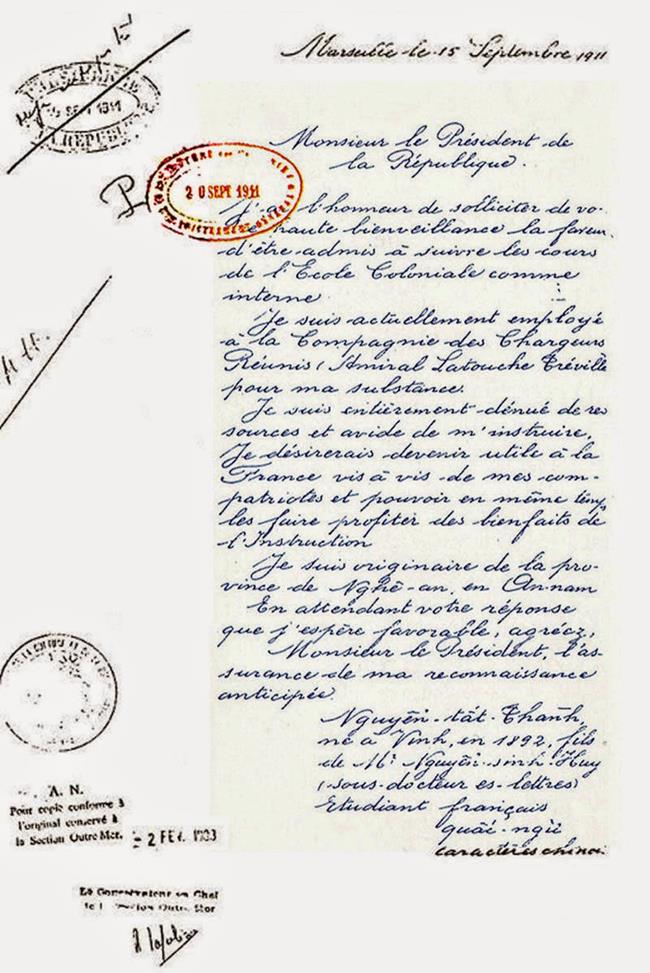 Marseille le 15 Septembre 1911
PRESIDENCE
SEPT 1911
LA REPUBLIQUE
Monsieur le Président de
la République.
20 SEPT 1911
J'ai l'honneur de solliciter de vo-
haute bienveillance la faveur
d'être admis à suivre les cours
de l'Ecole Coloniale comme
interne
Je suis actuellement employé
à la Compagnie des Chargeurs
Réunis (Amiral Latouche Tréville
pour ma substance.
Je suis entièrement dénué de res
sources et avide de m'instruire.
Je désirerais devenir utile à la
France vis à vis de mes com-
patriotes et pouvoir en même temps
les faire profiter des bienfaits de
l'Instruction
Je suis originaire de la pro-
vince de Nghê-an, en An-nam
En attendant votre réponse
que j'espère favorable, agréez,
Monsieur le Président, l'as-
surance de ma reconnaissance
anticipée.
Nguyên-tât-Thanh,
né à Vinh, en 1892, fils
de Mr Nguyên-sinh-Huy
(sous-docteur ès-lettres)
Etudiant français
quâi-ngü
caractères chinoi
A. N.
Pour copie conforme à
l'original conservé à
la Section Outre Mer.
- 2 FEV. 1983
Le Conservateur en Chef
de la Section Outre Mer